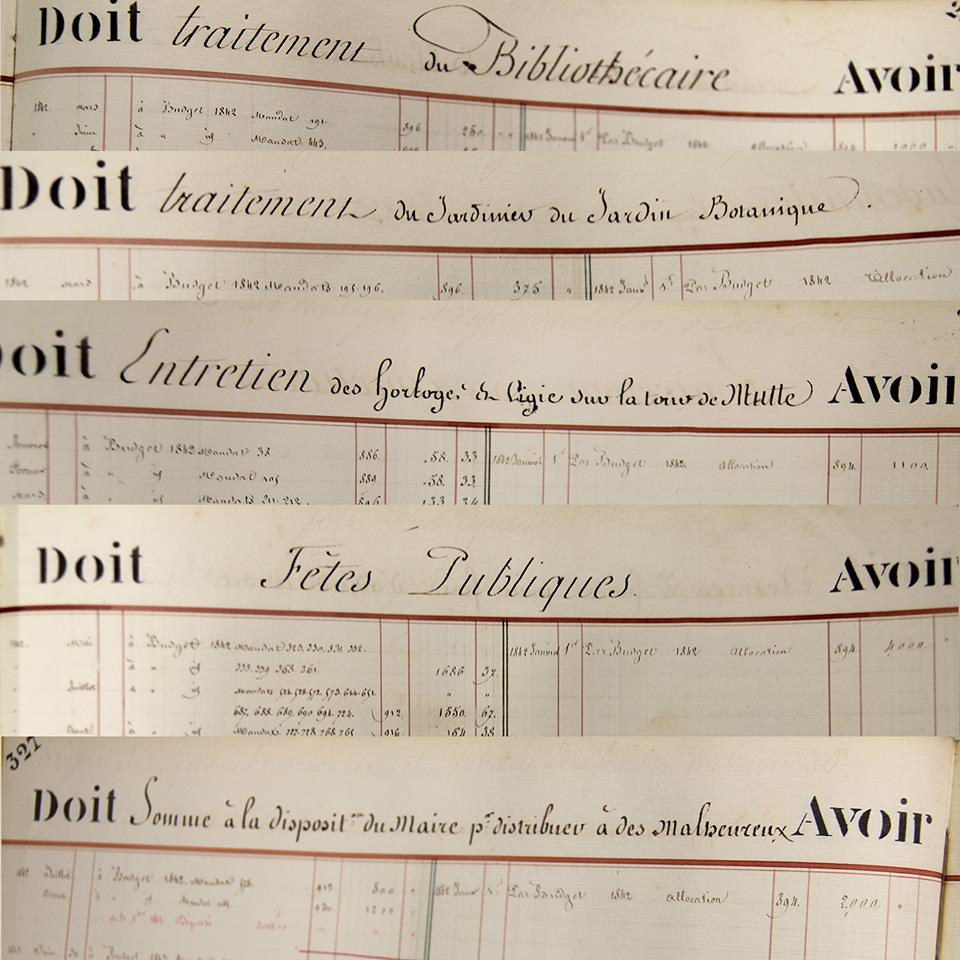 Doit traitement du Bibliothécaire Avoir
1842. mars à Budget 1842 Mandat 191. 896. 250.
" Juin à " id Mandat 443. 1842 Janvier 1er Par Budget 1842 allocation 894.
Doit traitement du Jardinier du Jardin Botanique.
1842 mars à Budget 1842 Mandats 195.196. 896. 375 " 1842 Janvr 1er Par Budget 1842 Allocation
Doit Entretien des horloges & Vigie sur la tour de Mutte Avoir
Janvier à Budget 1842 Mandat 38 886. 58. 33 1842 Janvier 1er Par Budget 1842. allocation 894. 1100.
Février à " id Mandat 109 889 58. 33
mars. à " id Mandats 211. 212. 896 133 34
Doit Fêtes Publiques. Avoir
1842. mai à Budget 1842 Mandats 323. 330. 331. 332. 1842 Janvier 1er Par Budget 1842 allocation 894 4000.
à " id 333. 339. 368. 361. 1686 37.
" Juillet à " id Mandats 524.528.572. 573. 644. 651. " "
687. 688. 689. 690 694. 724. 912. 1550. 67.
" Août à " id Mandats 727.728. 768 769 916. 154 38
327
Doit Somme à la disposit.on du Maire pr. distribuer à des Malheureux Avoir
1842. Juillet à Budget 1842. Mandat 912. 800 " 1842 Janvr 1er Par Budget 1842 allocation 894. 2,000. "
à " id Mandat 1200 "